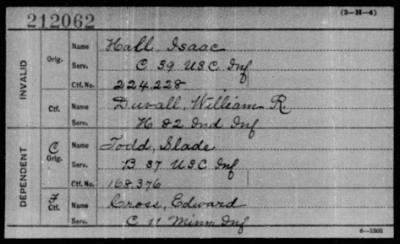 212062 (3-H-4)
INVALID
Orig. Name Hall, Isaac
Serv. C 39 USC Inf
Ctf. No. 224,228
Ctf. Name Duvall, William R
Serv. H 82 Ind Inf
DEPENDENT
C Orig. Name Todd, Slade
Serv. B 37 USC Inf
Ctf. No. 168,376
Ctf. Name Cross, Edward
Serv. C 11 Minn Inf